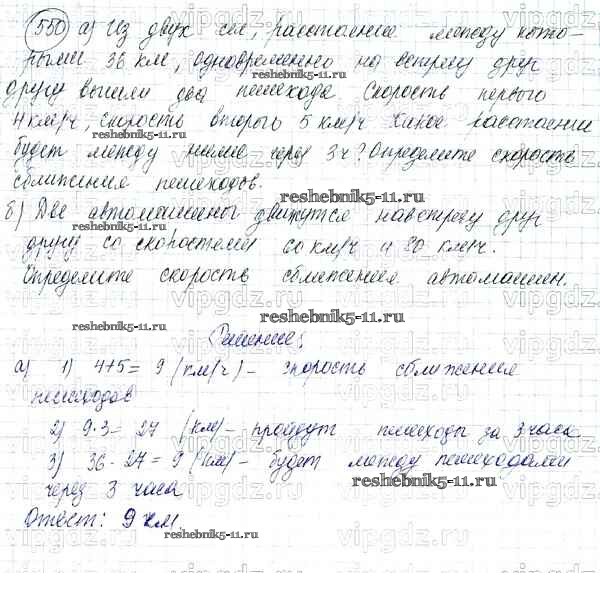 550 а) Из двух сел, расстояние между кото-
рыми 36 км, одновременно на встречу друг
другу вышли два пешехода. Скорость первого
4 км/ч, скорость второго 5 км/ч. Какое расстояние
будет между ними через 3 ч? Определите скорость
сближения пешеходов.
б) Две автомашины движутся навстречу друг
другу со скоростями 60 км/ч и 80 км/ч.
Определите скорость сближения автомашин.
Решение:
а) 1) 4+5= 9 (км/ч) - скорость сближения
пешеходов
2) 9·3= 27 (км) - пройдут пешеходы за 3 часа
3) 36-27=9 (км) - будет между пешеходами
через 3 часа
Ответ: 9 км.
reshebnik5-11.ru
reshebnik5-11.ru
reshebnik5-11.ru
reshebnik5-11.ru
reshebnik5-11.ru
reshebnik5-11.ru
reshebnik5-11.ru
reshebnik5-11.ru
vipgdz.ru